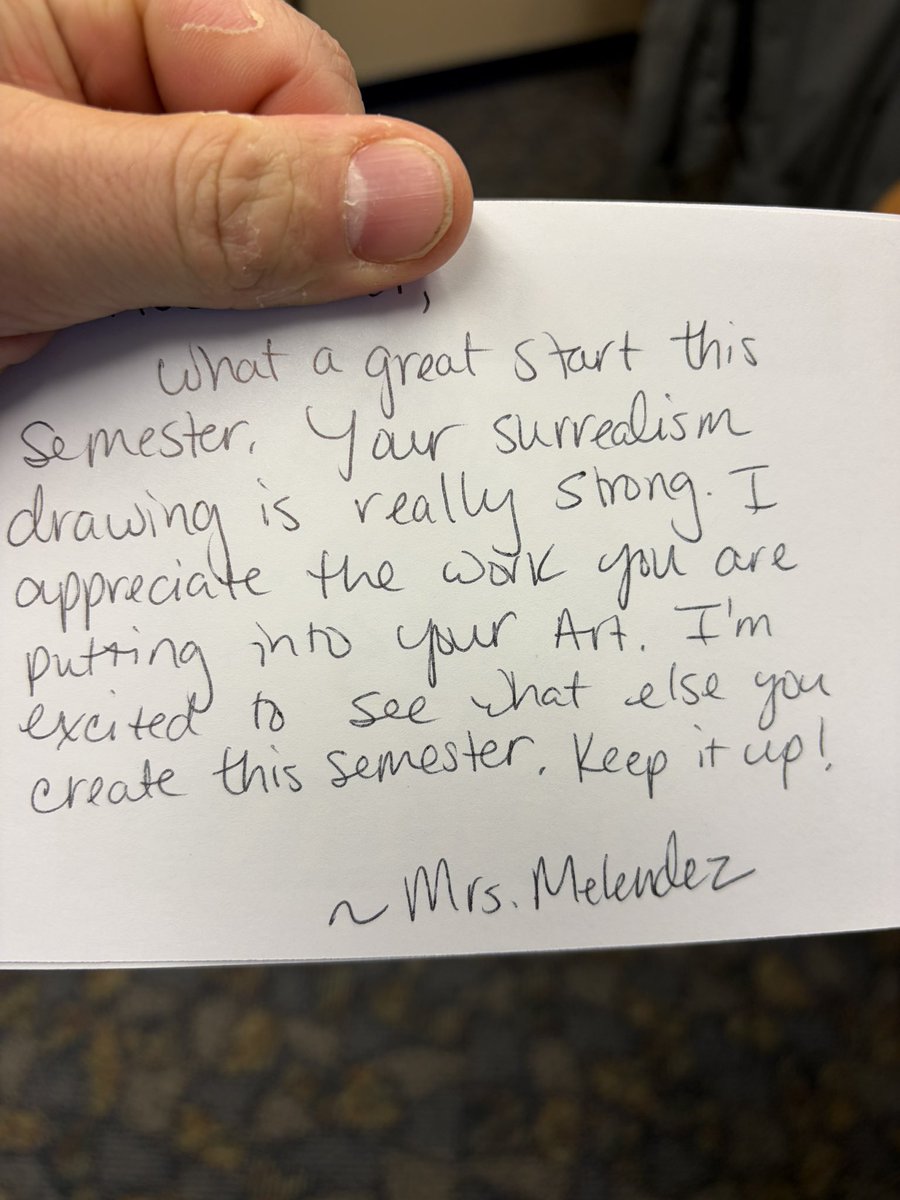 What a great start this
semester. Your surrealism
drawing is really strong. I
appreciate the work you are
putting into your Art. I'm
excited to see what else you
create this semester. Keep it up!
~ Mrs. Melendez